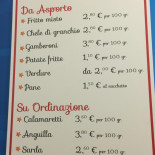 Da Asporto
Fritto misto 2,80 € per 100 gr.
Chele di granchio 2,80 € per 100 gr.
Gamberoni 3,80 € per 100 gr.
Patate fritte 1,50 € per 100 gr.
Verdure da 2,00 € per 100 gr.
Pane 1,50 € al sacchetto
Su Ordinazione
Calamaretti 3,80 € per 100 gr.
Anguilla 3,80 € per 100 gr.
Sarda 2,80 € per 100 gr.